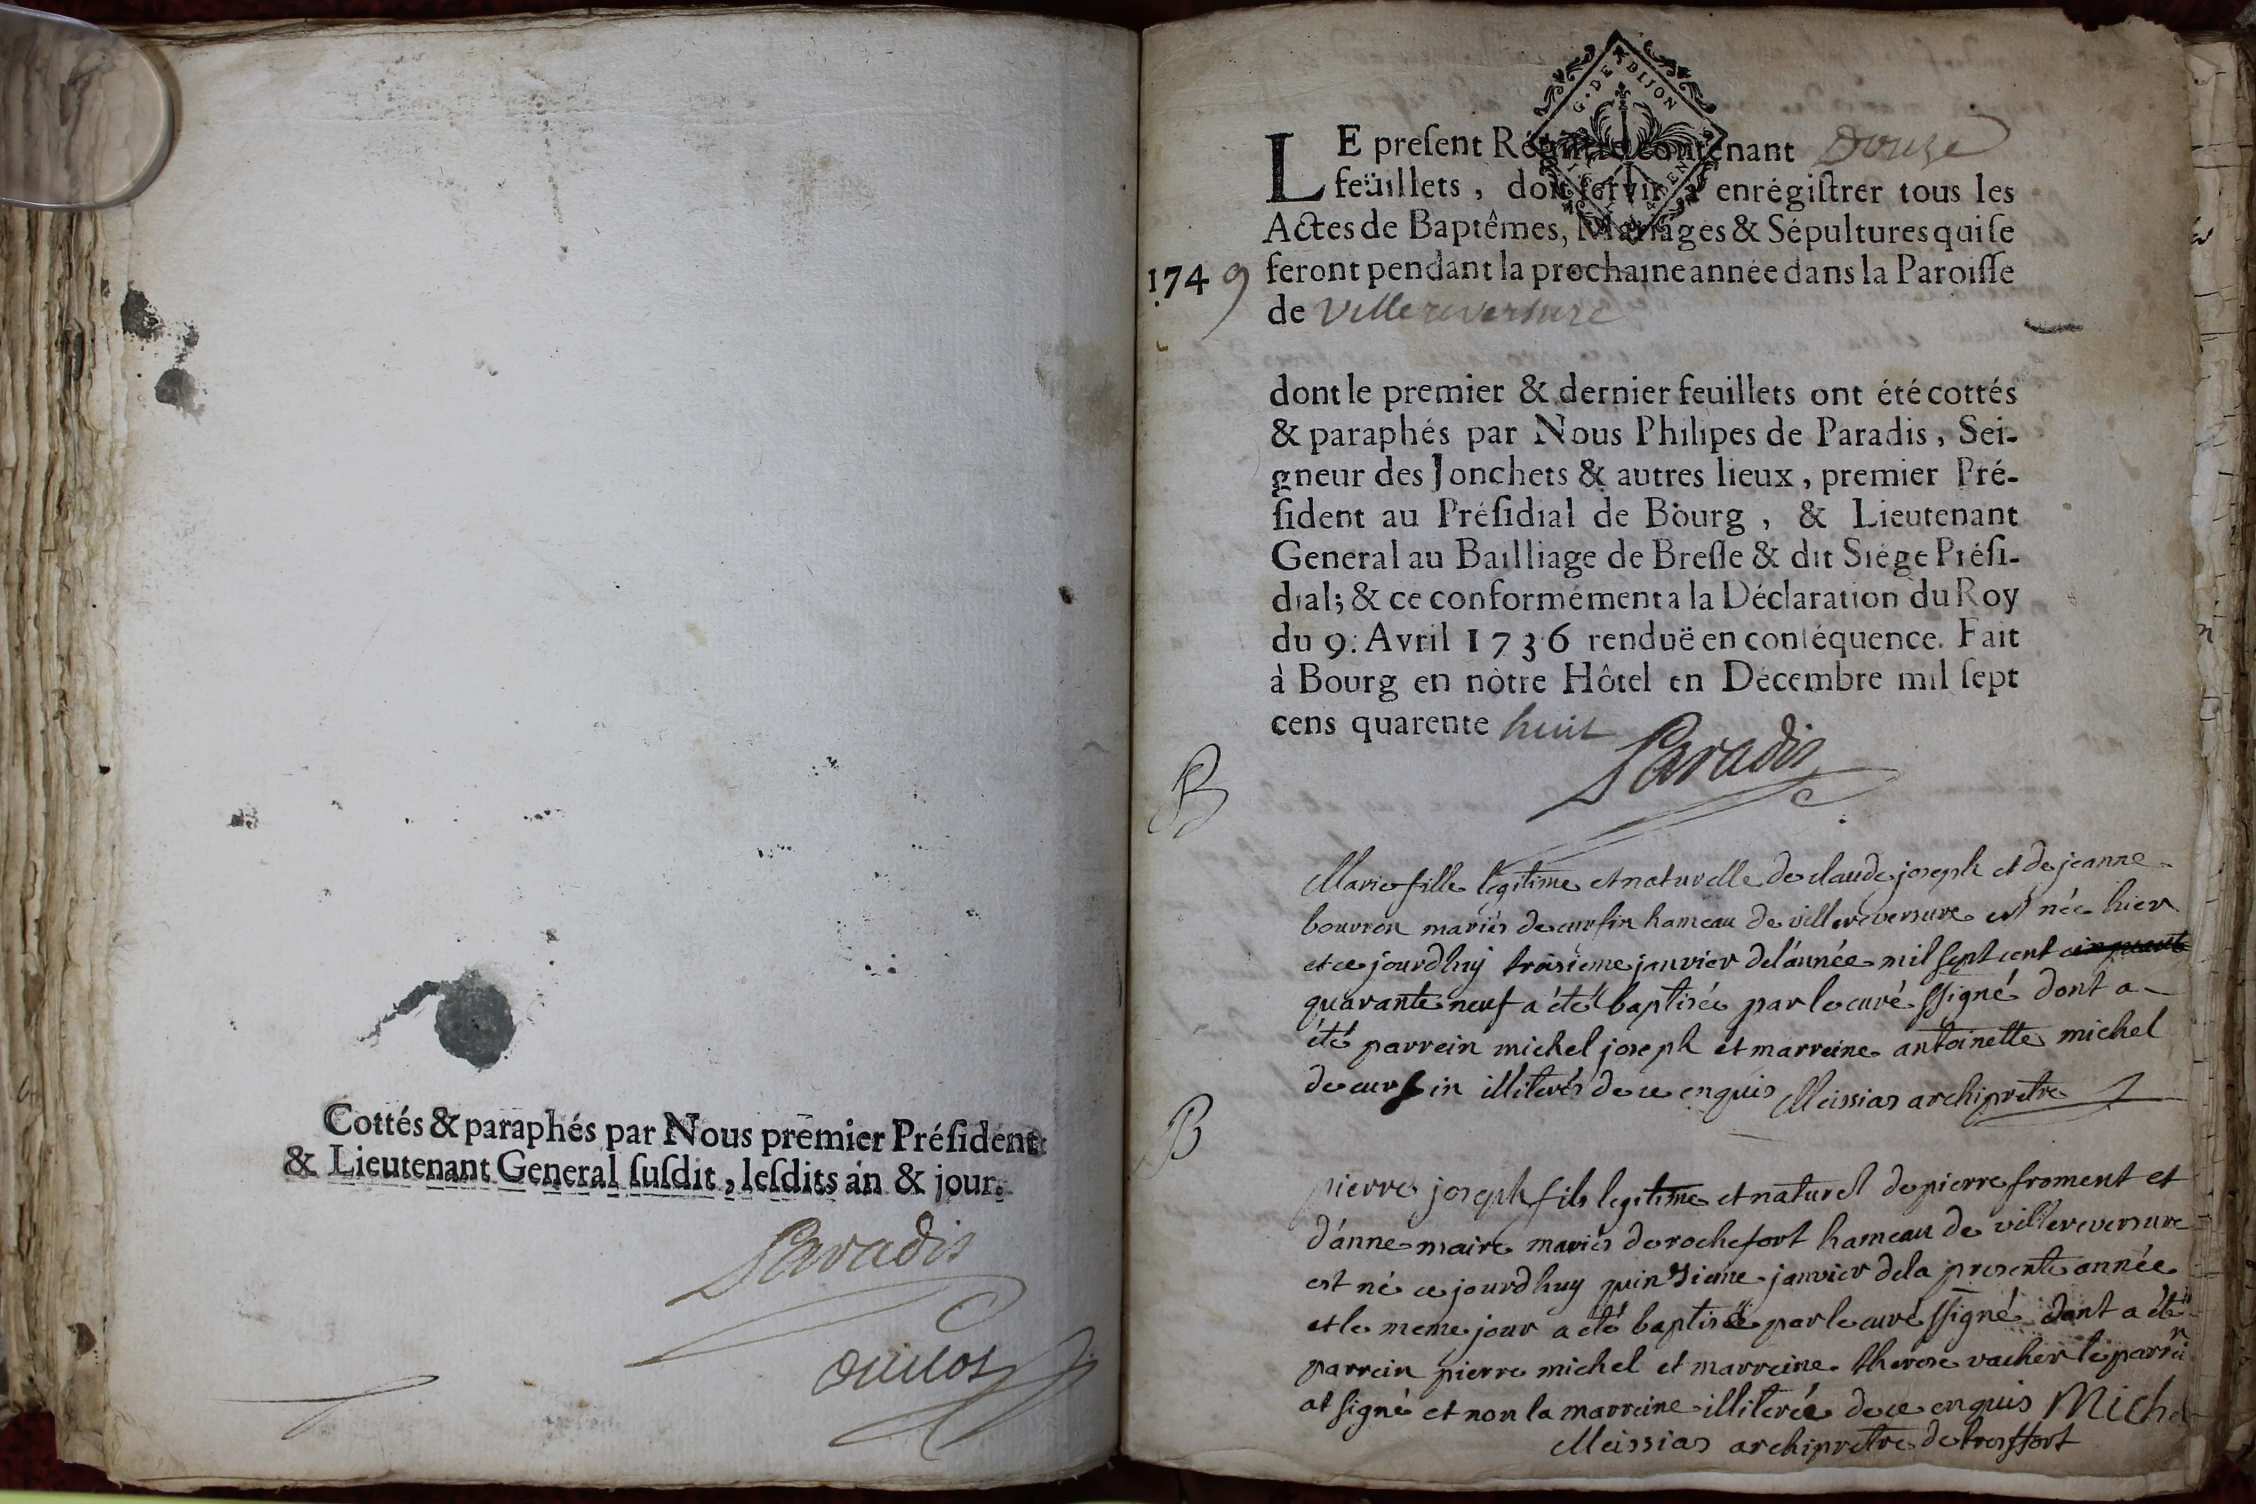 Cottés & paraphés par Nous premier Préſident
& Lieutenant General ſuſdit, leſdits an & jour.
Paradis
G. DE DIJON
LE preſent Régiſtre contenant Douze
feüillets, doit ſervir à enrégiſtrer tous les
Actes de Baptêmes, Mariages & Sépultures qui ſe
1749 feront pendant la prochaine année dans la Paroiſſe
de Villereversure
dont le premier & dernier feuillets ont été cottés
& paraphés par Nous Philipes de Paradis, Sei-
gneur des Jonchets & autres lieux, premier Pré-
ſident au Préſidial de Bourg, & Lieutenant
General au Bailliage de Breſſe & dit Siége Préſi-
dial; & ce conformément a la Déclaration du Roy
du 9. Avril 1736 renduë en conſéquence. Fait
à Bourg en nòtre Hôtel en Décembre mil ſept
cens quarente huit
Paradis
B
Marie fille legitime et naturelle de claude joseph et de jeanne
bourron mariés de curſin hameau de villereversure est née hier
et ce jourdhuy troisieme janvier de l'année mil sept cent cinquante
quarante neuf a été baptisée par le curé ssigné dont a
été parrein michel joseph et marreine antoinette michel
de curſin illiterés de ce enquis Meissias archiprêtre
B
pierre joseph fils legitime et naturel de pierre froment et
d'anne maire mariés de rochefort hameau de villereversure
est né ce jourdhuy quinzieme janvier de la presente année
et le meme jour a été baptisé par le curé ssigné dont a été
parrein pierre michel et marreine therese vacher le parrein
at signé et non la marreine illiterée de ce enquis Michel
Meissias archiprêtre de treffort